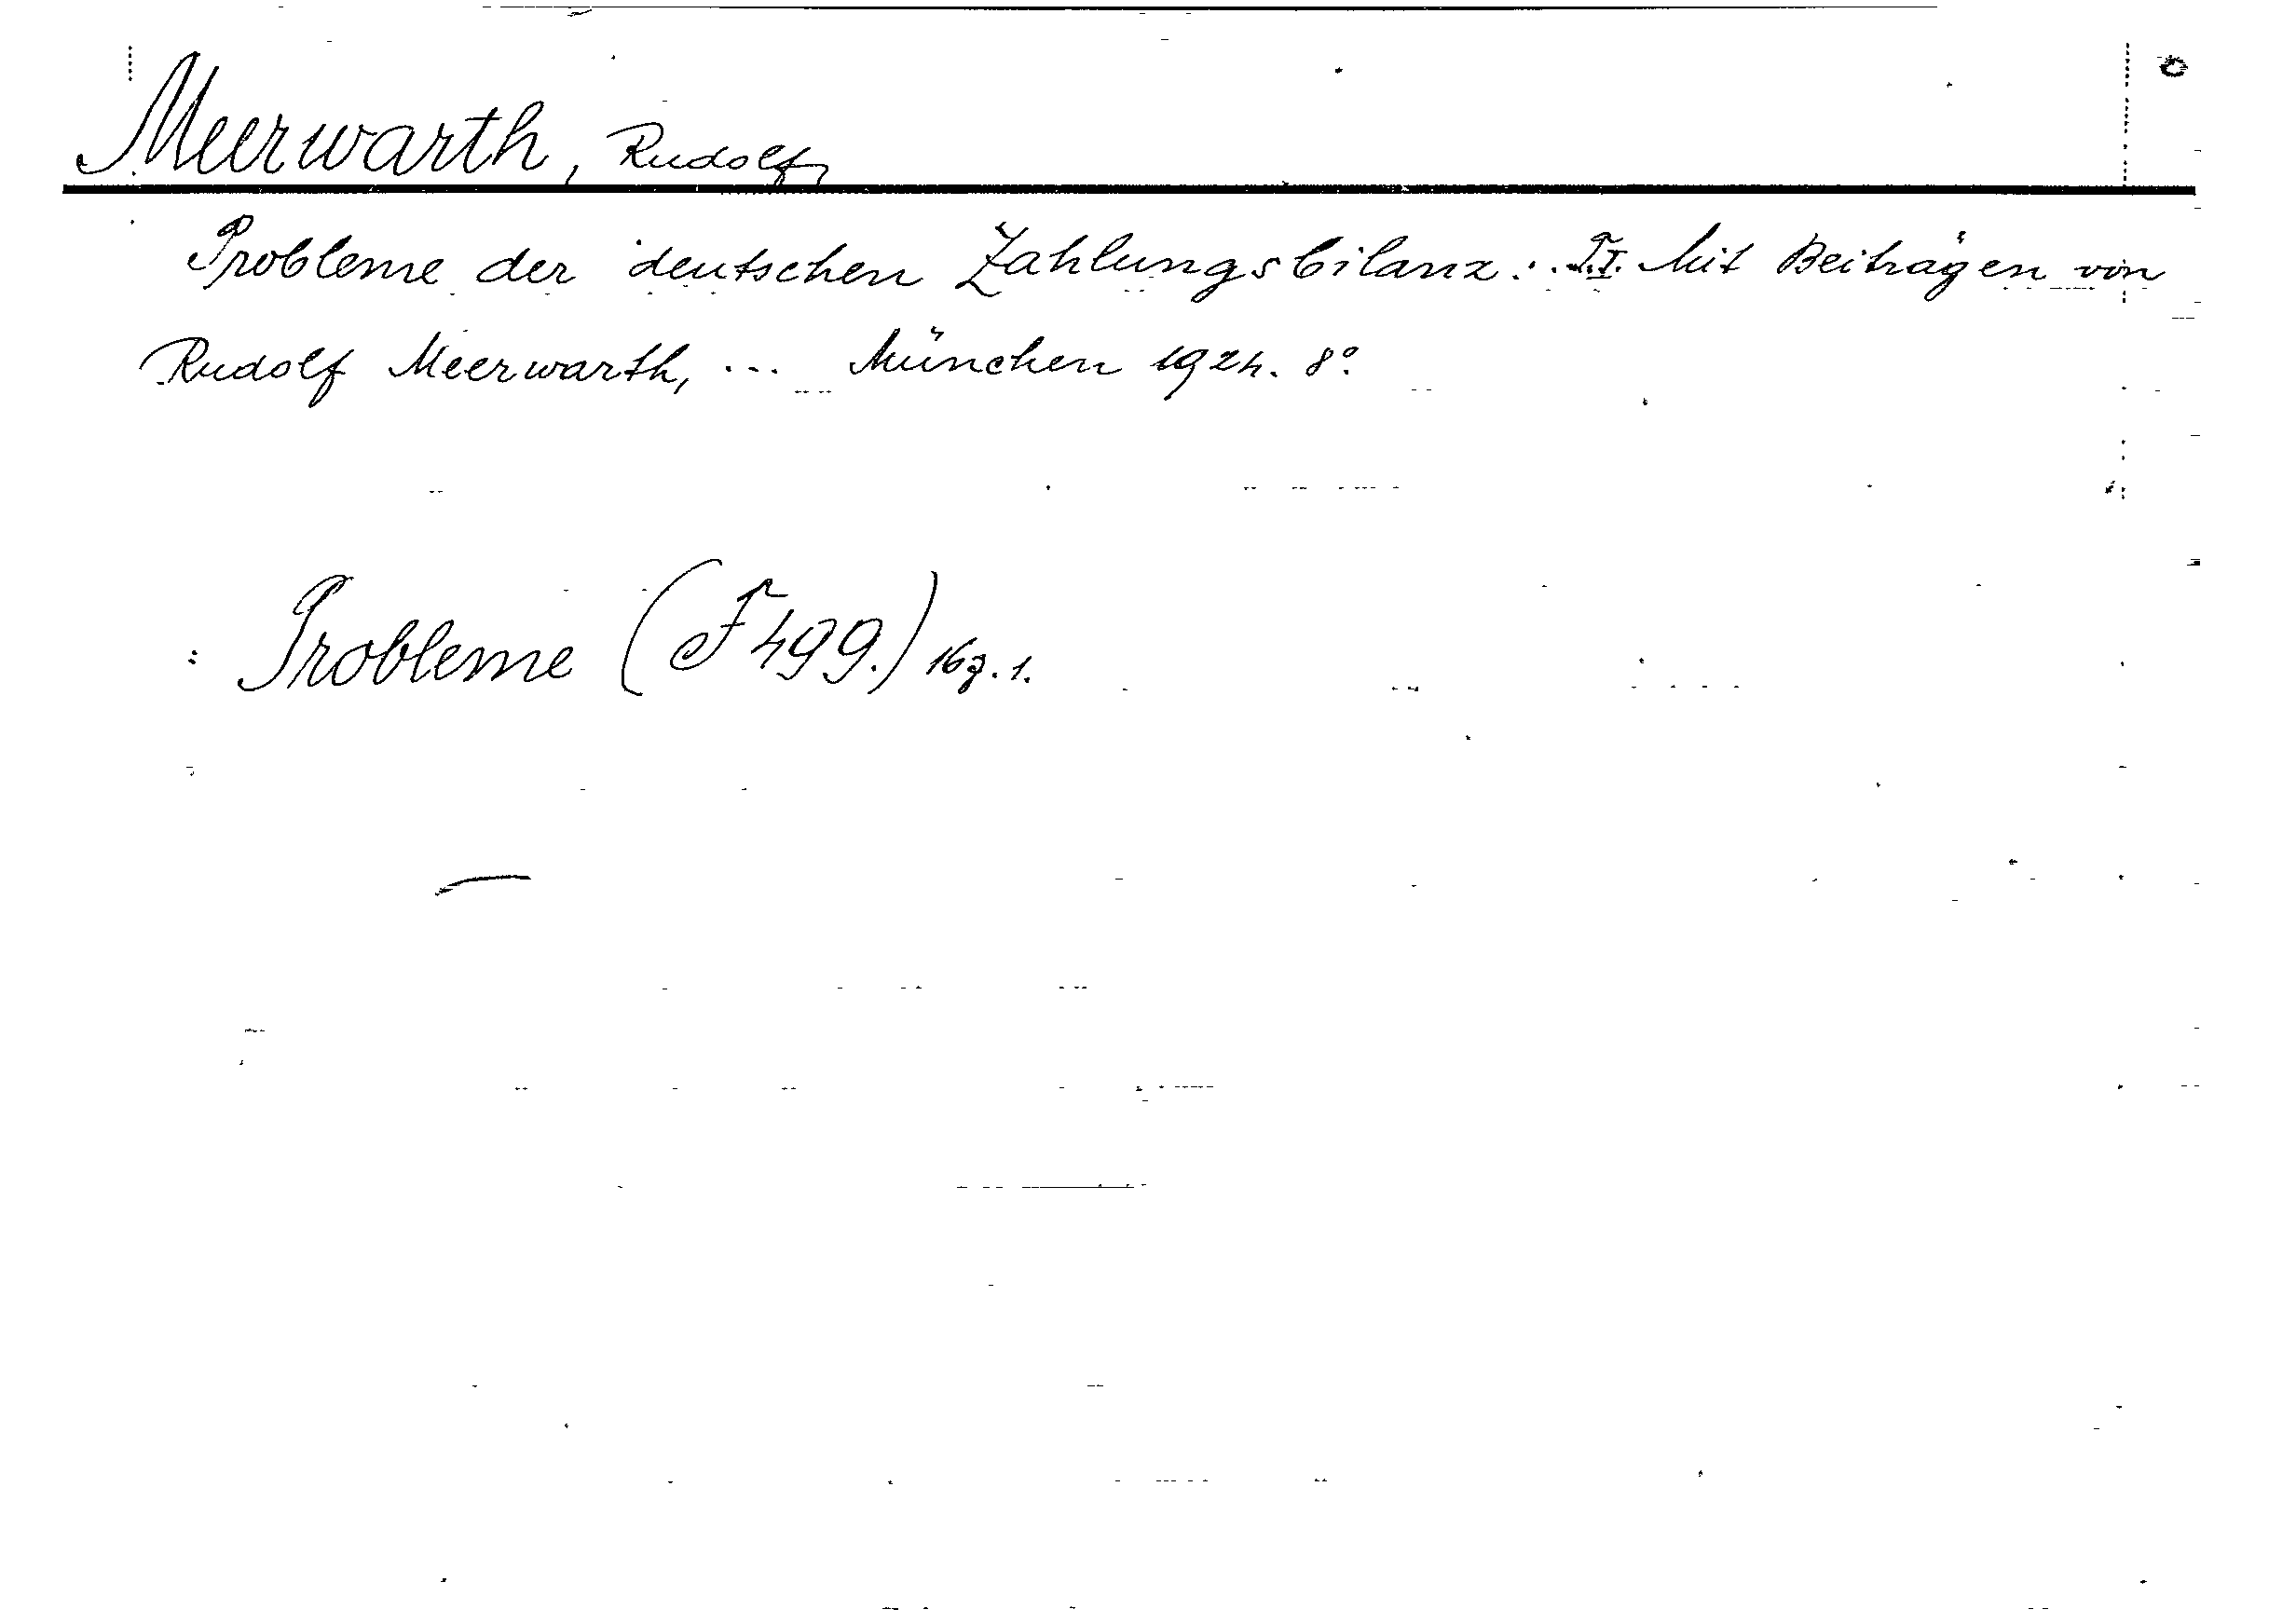 Meerwarth, Rudolf,
Probleme der deutschen Zahlungsbilanz... T.I. Mit Beiträgen von
Rudolf Meerwarth, ... München 1924. 8°.
: Probleme (F 499.) 167.1.